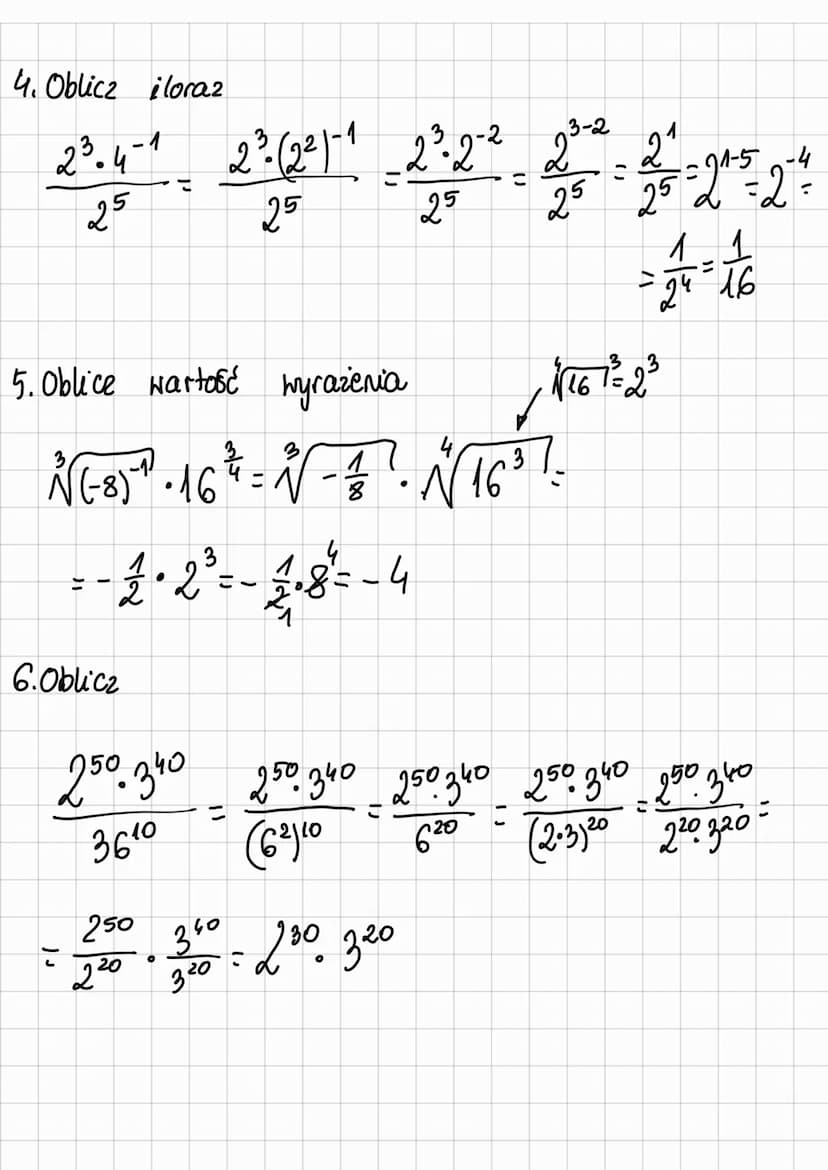 4. Oblicz iloraz
\frac{2^3 \cdot 4^{-1}}{2^5} = \frac{2^3 \cdot (2^2)^{-1}}{2^5} = \frac{2^3 \cdot 2^{-2}}{2^5} = \frac{2^{3-2}}{2^5} = \frac{2^1}{2^5} = 2^{1-5} = 2^{-4} =
= \frac{1}{2^4} = \frac{1}{16}
5. Oblice wartość wyrażenia
\sqrt[4]{16}^3 = 2^3
\sqrt[3]{(-8)^{-1}} \cdot 16^{\frac{3}{4}} = \sqrt[3]{-\frac{1}{8}} \cdot \sqrt[4]{16^3} =
= -\frac{1}{2} \cdot 2^3 = -\frac{1}{\cancel{2}_1} \cdot \cancel{8}^4 = -4
6. Oblicz
\frac{2^{50} \cdot 3^{40}}{36^{10}} = \frac{2^{50} \cdot 3^{40}}{(6^2)^{10}} = \frac{2^{50} \cdot 3^{40}}{6^{20}} = \frac{2^{50} \cdot 3^{40}}{(2 \cdot 3)^{20}} = \frac{2^{50} \cdot 3^{40}}{2^{20} \cdot 3^{20}} =
= \frac{2^{50}}{2^{20}} \cdot \frac{3^{40}}{3^{20}} = 2^{30} \cdot 3^{20}